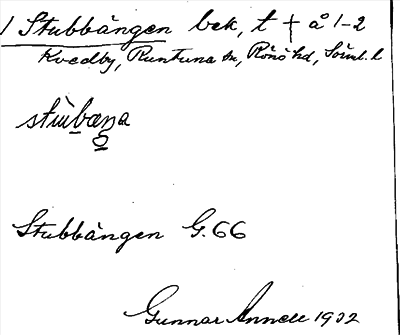 1 Stubbängen bek, t † å 1-2
Kvedby, Runtuna sn, Rönö hd, Söml. l
Stubbängen G. 66
Gunnar Annell 1932